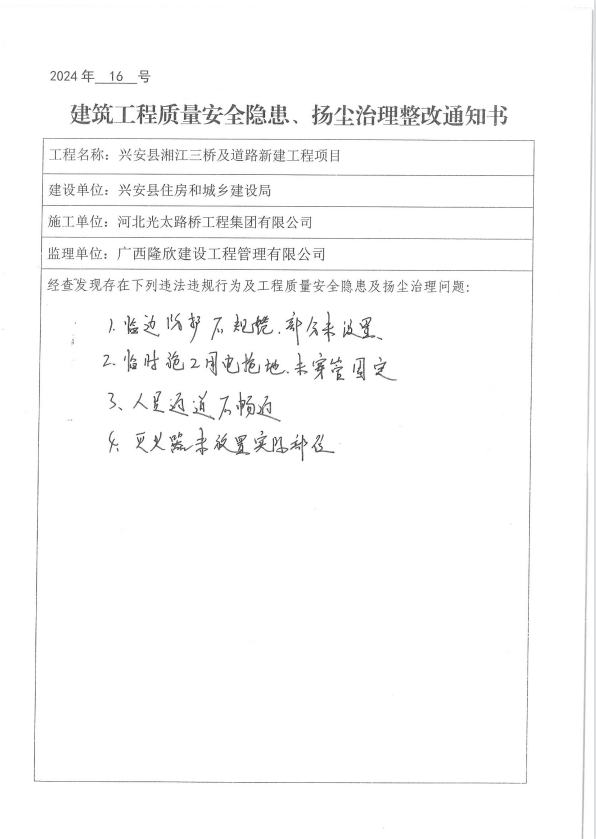 2024 年 16 号
建筑工程质量安全隐患、扬尘治理整改通知书
工程名称：兴安县湘江三桥及道路新建工程项目
建设单位：兴安县住房和城乡建设局
施工单位：河北光太路桥工程集团有限公司
监理单位：广西隆欣建设工程管理有限公司
经查发现存在下列违法违规行为及工程质量安全隐患及扬尘治理问题：
1、临边防护不规范、部分未设置
2、临时施工用电拖地、未穿管固定
3、人员通道不畅通
4、灭火器未放置实际部位